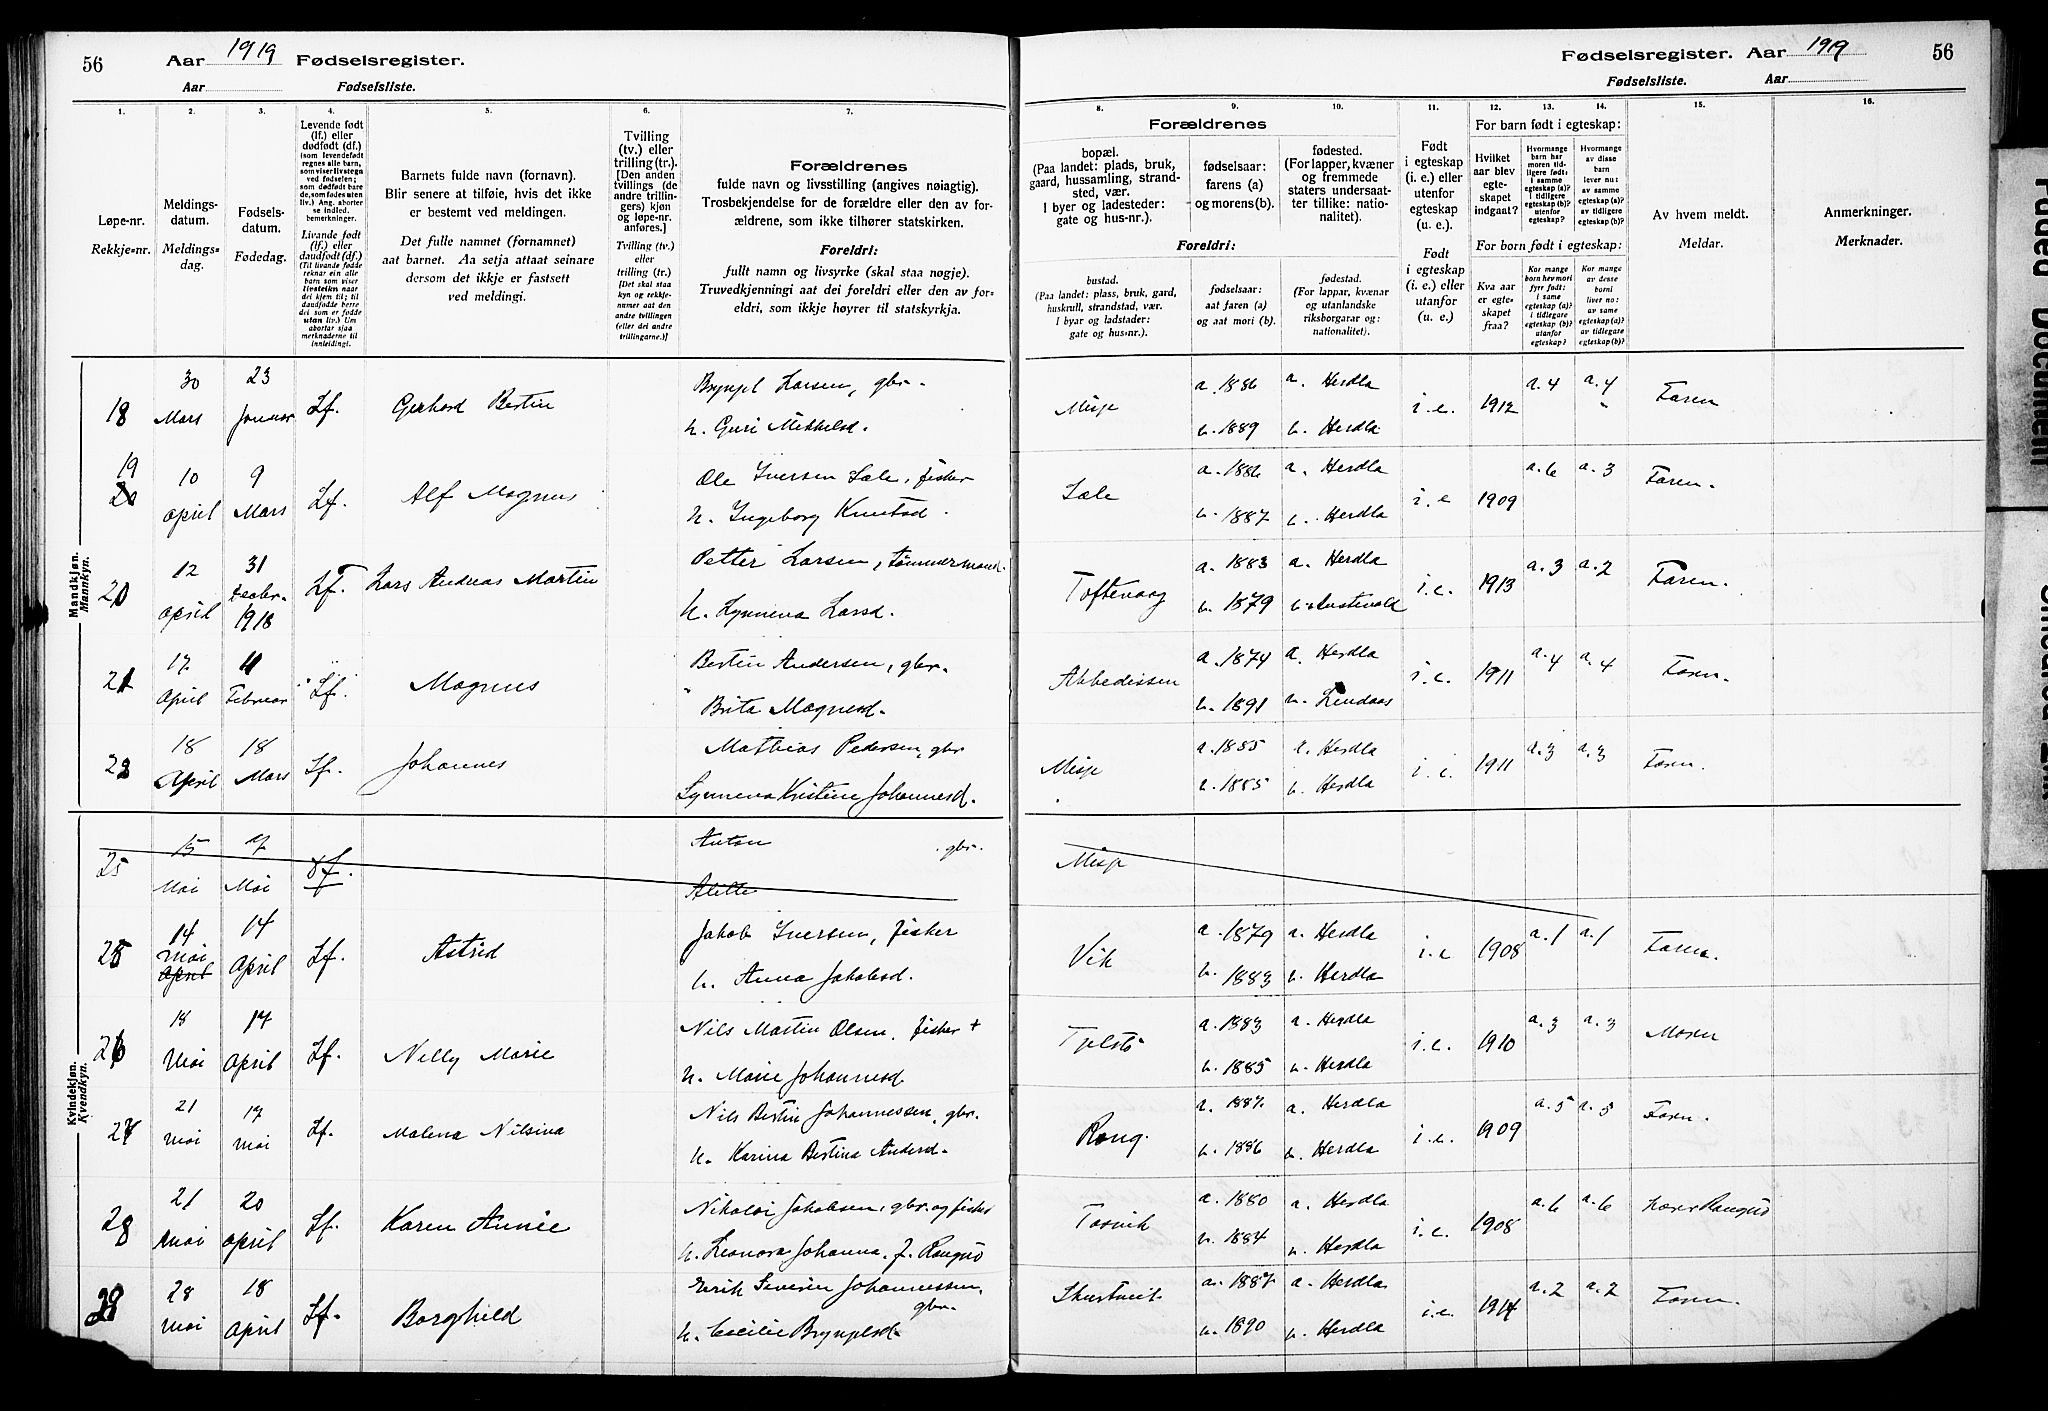 56 Aar 1919 Fødselsregister.
Aar Fødselsliste.
Fødselsregister. Aar 1919 56
Fødselsliste. Aar
1. 2. 3. 4. 5. 6. 7. 8. 9. 10. 11. 12. 13. 14. 15. 16.
Løpe-nr.
Rekkje-nr.
Meldings-
datum.
Meldings-
dag.
Fødsels-
datum.
Fødedag.
Levende født
(lf.) eller
dødfødt (df.)
Livande født
(lf.) eller
daudfødt (df.)
Barnets fulde navn (fornavn).
Blir senere at tilføie, hvis det ikke
er bestemt ved meldingen.
Det fulle namnet (fornamnet)
aat barnet. Aa setja attaat seinare
dersom det ikkje er fastsett
ved meldingi.
Tvilling
(tv.) eller
trilling (tr.).
[Den anden
tvillings (de
andre trillin-
gers) kjøn
og løpe-nr.
anføres.]
Tvilling (tv.)
eller
trilling (tr.)
[Det skal staa
kyn og rekkje-
nummer aat den
andre tvillingen
(eller dei andre
trillingarne.)]
Forældrenes
fulde navn og livsstilling (angives nøiagtig).
Trosbekjendelse for de forældre eller den av for-
ældrene, som ikke tilhører statskirken.
Foreldri:
fullt namn og livsyrke (skal staa nøgje).
Truvedkjenningi aat dei foreldri eller den av for-
eldri, som ikkje høyrer til statskyrkja.
Forældrenes
bopæl.
(Paa landet: plads, bruk,
gaard, hussamling, strand-
sted, vær.
I byer og ladesteder:
gate og hus-nr.).
fødselsaar:
farens (a)
og morens (b).
fødested.
(For lapper, kvæner
og fremmede
staters undersaat-
ter tillike: natio-
nalitet).
Foreldri:
bustad.
(Paa landet: plass, bruk, gard,
huskrull, strandstad, vær.
I byar og ladstader:
gate og hus-nr.).
fødselsaar:
aat faren (a)
og aat mori (b).
fødestad.
(For lappar, kvænar
og utanlandske
riksborgarar og:
nationalitet).
Født
i egteskap
(i. e.) eller
utenfor
egteskap
(u. e.).
Født
i egteskap
(i. e.) eller
utanfor
(u. e.)
For barn født i egteskap:
Hvilket
aar blev
egte-
skapet
indgaat?
Hvormange
barn har
moren tid-
ligere født:
i samme
egteskap (a)?
i tidligere
egteskap (b)?
utenfor
egteskap?
Hvormange
av disse
barn
lever nu:
av samme
egteskap (a)?
av tidligere
egteskap (b)?
For born født i egteskap:
Kva aar
er egte-
skapet
fraa?
Kor mange
born hev mori
fyrr født:
i same
egteskap (a)?
i tidlegare
egteskap (b)?
utanfor
egteskap?
Kor mange
av desse
borni
liver no:
av same
egteskap (a)?
av tidlegare
egteskap (b)?
Av hvem meldt.
Meldar.
Anmerkninger.
Merknader.
Mandkjøn.
Mannkyn.
18 30 Mars 23 Januar Lf. Gerhard Bertin
Brynjel Larsen, gbr.
h. Guri Mikkelsd.
Misje a. 1886 a. Herdla
h. 1889 h. Herdla
i.e. 1912 a. 4 a. 4 Faren
19 10 April 9 Mars Lf. Alf Magnus
Ole Iversen Sæle, fisker
h. Ingeborg Knutsd.
Sæle a. 1886 a. Herdla
h. 1887 h. Herdla
i.e 1909 a. 6 a. 3 Faren.
20 12 April 31 1918 Lf. Lars Andreas Martin
Petter Larsen, tømmermand.
h. Synneva Larsd.
Toftevaag a. 1883 a. Herdla
h. 1879 h. Austevold
i.e. 1913 a. 3 a. 2 Faren.
21 17 April 11 Februar Lf. Magnus
Bertin Andersen, gbr.
Brita Magnesd.
Abbedissen a. 1874 a. Herdla
h. 1891 h. Lindaas
i.e. 1911 a. 4 a. 4 Faren.
22 18 April 18 Mars Lf. Johannes
Mathias Pedersen, gbr
Synneva Kristine Johannesd.
Misje a. 1885 a. Herdla
h. 1885 h. Herdla
i.e. 1911 a. 3 a. 3 Faren.
Kvindekjøn.
Kvendkyn.
25 15 Mai 7 Mai df. Anton gbr.
Alette
Misje
25 14 Mai April 14 April Lf. Astrid
Jakob Iversen, fisker
h. Anna Jakobsd.
Vik a. 1879 a. Herdla
h. 1883 h. Herdla
i.e 1908 a. 1 a. 1
26 18 Mai 17 April Lf. Nelly Marie
Nils Martin Olsen, fisker +
h. Marie Johannesd.
Tjelstø a. 1883 a. Herdla
h. 1885 h. Herdla
i.e. 1910 a. 3 a. 3 Moren
27 21 Mai 17 Mai Lf. Malena Nilsina
Nils Bertin Johannessen, gbr.
h. Karina Bertina Andersd.
Rong. a. 1887 a. Herdla
h. 1886 h. Herdla
i.e. 1909 a. 5 a. 5 Faren.
28 21 Mai 20 April Lf. Karen Annie
Nikolai Jakobsen, gbr. og fisker
h. Leonora Johanna, f. Rongnø
Torvik a. 1880 a. Herdla
h. 1884 h. Herdla
i.e. 1908 a. 6 a. 6
29 28 Mai 18 April Lf. Borghild
Erik Severin Johannessen,
gbr.
h. Cecilie Brynjelsd.
a. 1887 a. Herdla
h. 1890 h. Herdla
i.e. 1914 a. 2 a. 2 Faren.
Faded Document